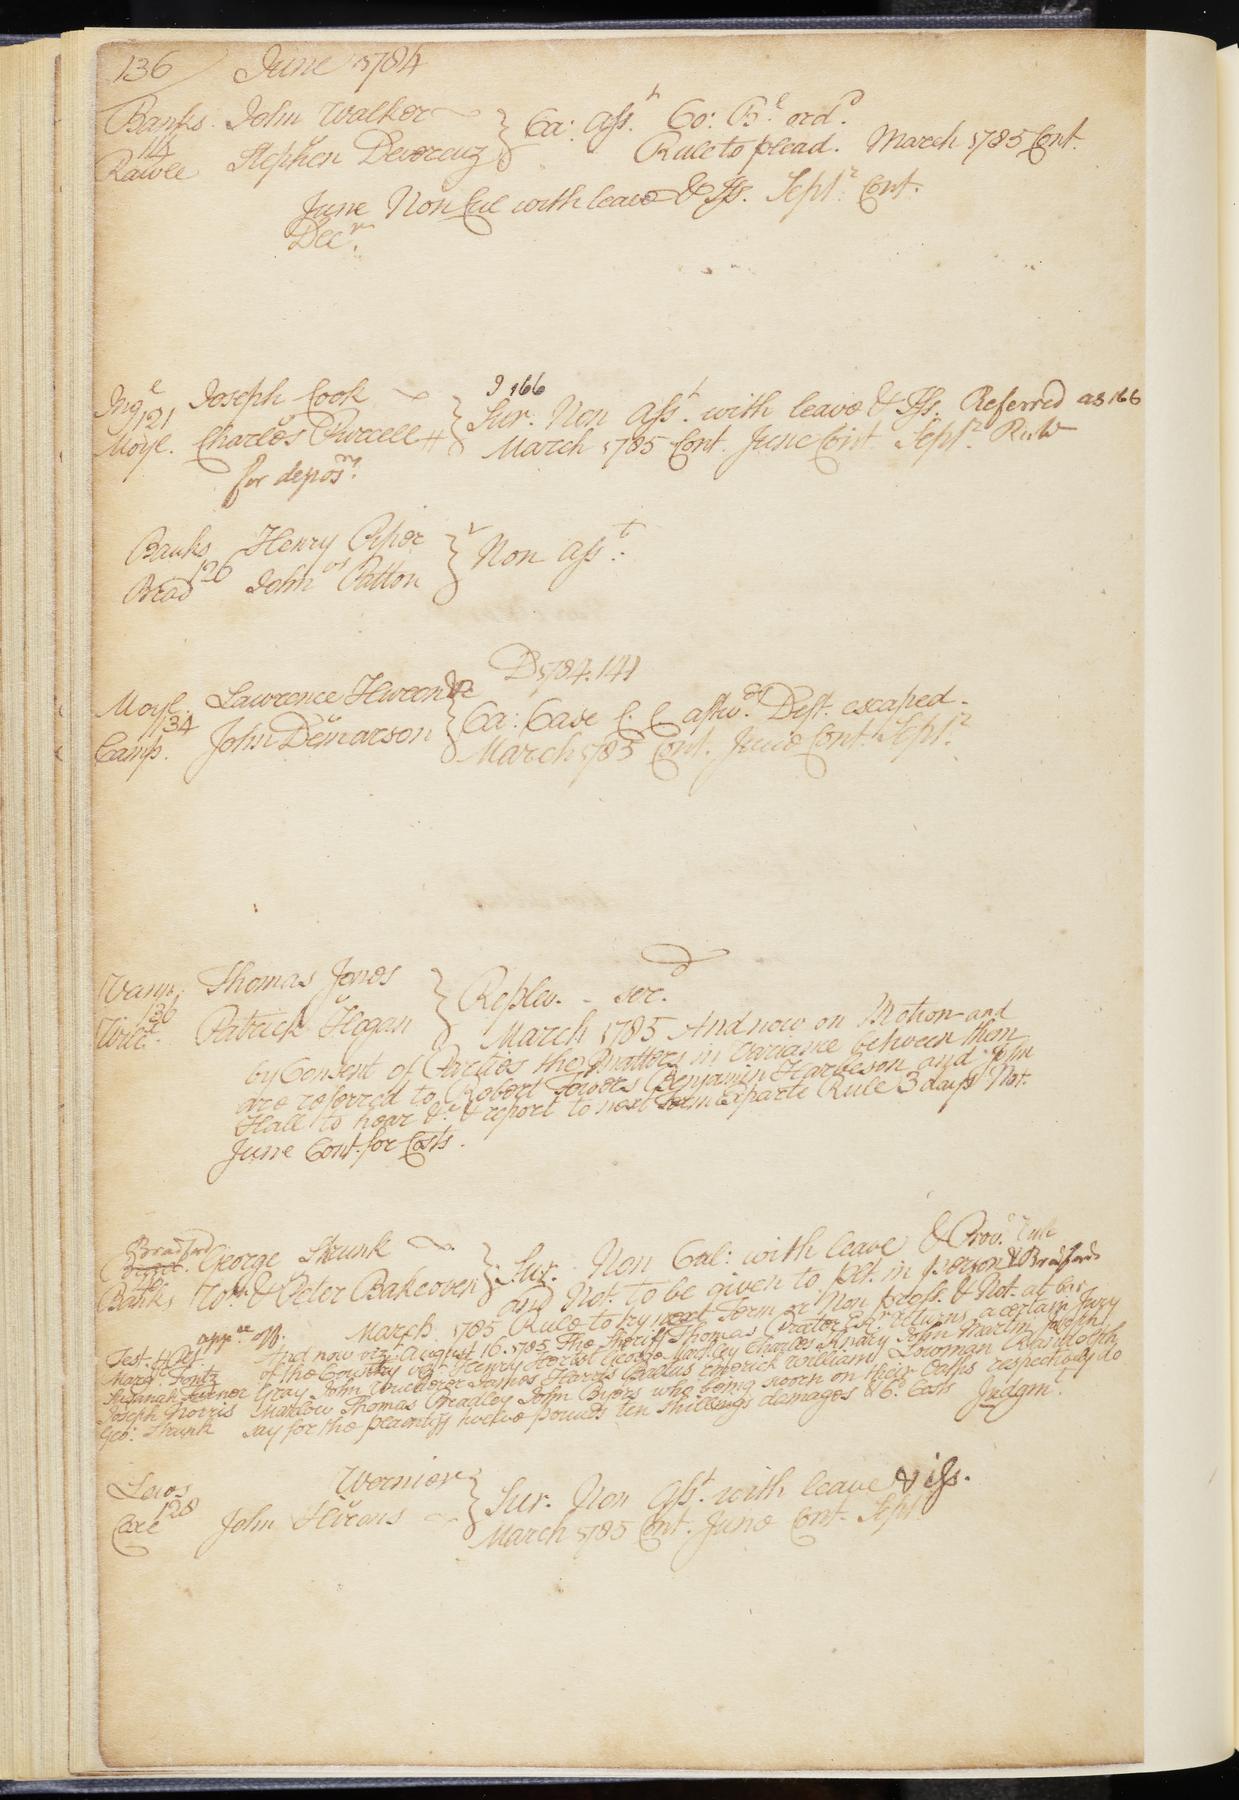 136 June 1784
Banks. John Walker } Ca: Ass.t Co: B.l ord.d
116 v
Rawle Stephen Devereux Rule to plead. March 1785 Cont.
June Non Cul with leave & Iss. Sept.r Cont.
Dec.r
J 166
Ing.l Joseph Cook } Sur. Non Ass.t with leave & Iss. Referred as 166
121 v
Moyl. Charles Purcell March 1785 Cont. June Cont. Sept.r Rule
for depos.ns
Banks Henry Piper } Non Ass.t
126 vs
Brad John Patton
D 1784. 141
Moyl. Lawrence } Ca: Case Deft. escaped.
134 v
Camp. John Demarson March 1785 Cont. June Cont. Sept.r
Thomas Jones } Replev. - ser.d
136 v
Patrick Hogan March 1785 And now on Motion and
by Consent of Parties the Matters in Variance between them
are referred to Robert Towers Benjamin Harbeson and John
Hall to hear &c & report to next term Exparte Rule 3 days Not.
June Cont. for Costs.
Bradford George Strunk } Sur. Non Cul: with leave & Prov.o rule
Banks W.m & Peter Bakeoven and Not. to be given to plt. in person & Bradford
March 1785 Rule to try next Term or Non pross. & Not. at bar
app.ce off. And now viz.t August 16. 1785 The Sheriff Thomas Proctor Esq.r returns a certain Jury
Test. 4 Plt. of the Country viz.t Henry George Charles John Martin Joseph
Marg.t Fontz Gray John James Harris William Lowman Randolph
Joseph Norris Marlow Thomas Bradley John Byers who being sworn on their Oaths respectively do
Geo: Strunk say for the plaintiff twelve pounds ten shillings damages & 6.d Costs Judgm.t
Lewis Wernier } Sur. Non Ass.t with leave & iss.
128 v
Coxe John March 1785 Cont. June Cont. Sept.r